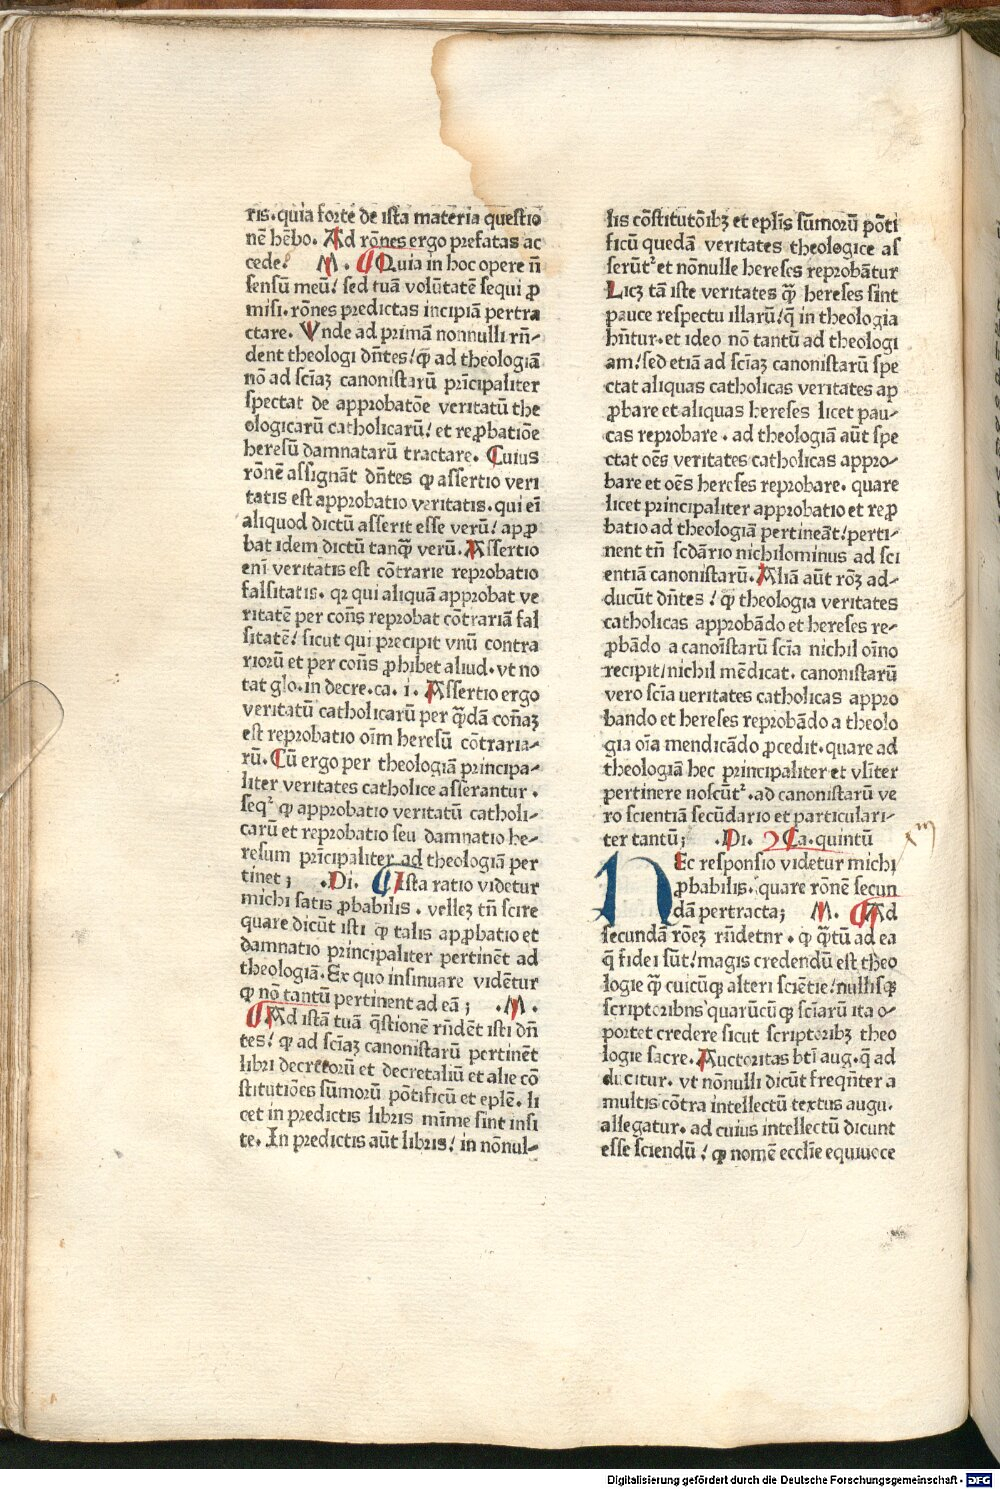 ris. quia forte de ista materia questio
nē hēbo. Ad rōnes ergo prefatas ac
cede! M. Quia in hoc opere n̄
sensū meū! sed tuā volūtatē sequi ꝓ
misi. rōnes predictas incipiā pertra
ctare. Vnde ad primā nonnulli rn̄-
dent theologi dn̄tes! ꝙ ad theologiā
nō ad sciaꝫ canonistarū prīcipaliter
spectat de approbatōe veritatū the
ologicarū catholicarū! et reꝓbatiōe
heresū damnatarū tractare. Cuius
rōnē assignāt dn̄tes ꝙ assertio veri
tatis est approbatio veritatis. qui eī
aliquod dictū asserit esse verū! apꝓ
bat idem dictū tanꝙ̄ verū. Assertio
enī veritatis est cōtrarie reprobatio
falsitatis. qꝛ qui aliquā approbat ve
ritatē per cōn̄s reprobat cōtrariā fal
sitatē! sicut qui precipit vnū contra
riorū et per cōn̄s ꝓhibet aliud. vt no
tat glo. in decre. ca. i. Assertio ergo
veritatū catholicarū per q̄dā cōn̄aꝫ
est reprobatio oīm heresū cōtraria-
rū. Cū ergo per theologiā principa-
liter veritates catholice asserantur.
seq̄ᷣ ꝙ approbatio veritatū catholi-
carū et reprobatio seu damnatio he-
resum prīcipaliter ad theologiā per
tinet; .Di. Ista ratio videtur
michi satis ꝓbabilis. velleꝫ tn̄ scire
quare dicūt isti ꝙ talis apꝓbatio et
damnatio principaliter pertinēt ad
theologiā. Ex quo insinuare vidētur
ꝙ nō tantū pertinent ad eā; .M.
Ad istā tuā q̄stionē rn̄dēt isti dn̄
tes! ꝙ ad sciaꝫ canonistarū pertinēt
libri decretorū et decretaliū et alie cō
stitutiōes sūmorū pōtificū et eplē. li
cet in predictis libris mīme sint insi
te. In predictis aūt libris! in nōnul-
lis cōstitutōibꝫ et eplīs sūmorū pōti
ficū quedā veritates theologice as
serūtᷣ et nōnulle hereses reprobātur
Licꝫ tā iste veritates ꝙ̄ hereses sint
pauce respectu illarū! q̄ in theologia
hn̄tur. et ideo nō tantū ad theologi
am! sed etiā ad sciaꝫ canonistarū spe
ctat aliquas catholicas veritates ap
ꝓbare et aliquas hereses licet pau-
cas reprobare. ad theologiā aūt spe
ctat oēs veritates catholicas appro-
bare et oēs hereses reprobare. quare
licet principaliter approbatio et reꝓ
batio ad theologiā pertineāt! perti-
nent tn̄ scdārio nichilominus ad sci
entiā canonistarū. Aliā aūt rōꝫ ad-
ducūt dn̄tes! ꝙ theologia veritates
catholicas approbādo et hereses re-
ꝓbādo a canoīstarū scīa nichil oīno
recipit! nichil mēdicat. canonistarū
vero scīa ueritates catholicas appro
bando et hereses reprobādo a theolo
gia oīa mendicādo ꝓcedit. quare ad
theologiā hec principaliter et vlīter
pertinere noscūtᷣ. ad canonistarū ve
ro scientiā secūdario et particulari-
ter tantū; .Di. Ca. quintū
NEc responsio videtur michi
ꝓbabilis. quare rōnē secun
dā pertracta; M. Ad
secundā rōeꝫ rn̄detnr. ꝙ q̄tū ad ea
q̄ fidei sūt! magis credendū est theo
logie ꝙ̄ cuicūqꝫ alteri sciētie! nullisqꝫ
scriptoribns quarūcūqꝫ sciārū ita o-
portet credere sicut scriptoribꝫ theo
logie sacre. Auctoritas btī aug. q̄ ad
ducitur. vt nōnulli dicūt freqn̄ter a
multis cōtra intellectū textus augu.
allegatur. ad cuius intellectū dicunt
esse sciendū! ꝙ nomē ecclīe equiuoce
Digitalisierung gefördert durch die Deutsche Forschungsgemeinschaft - DFG